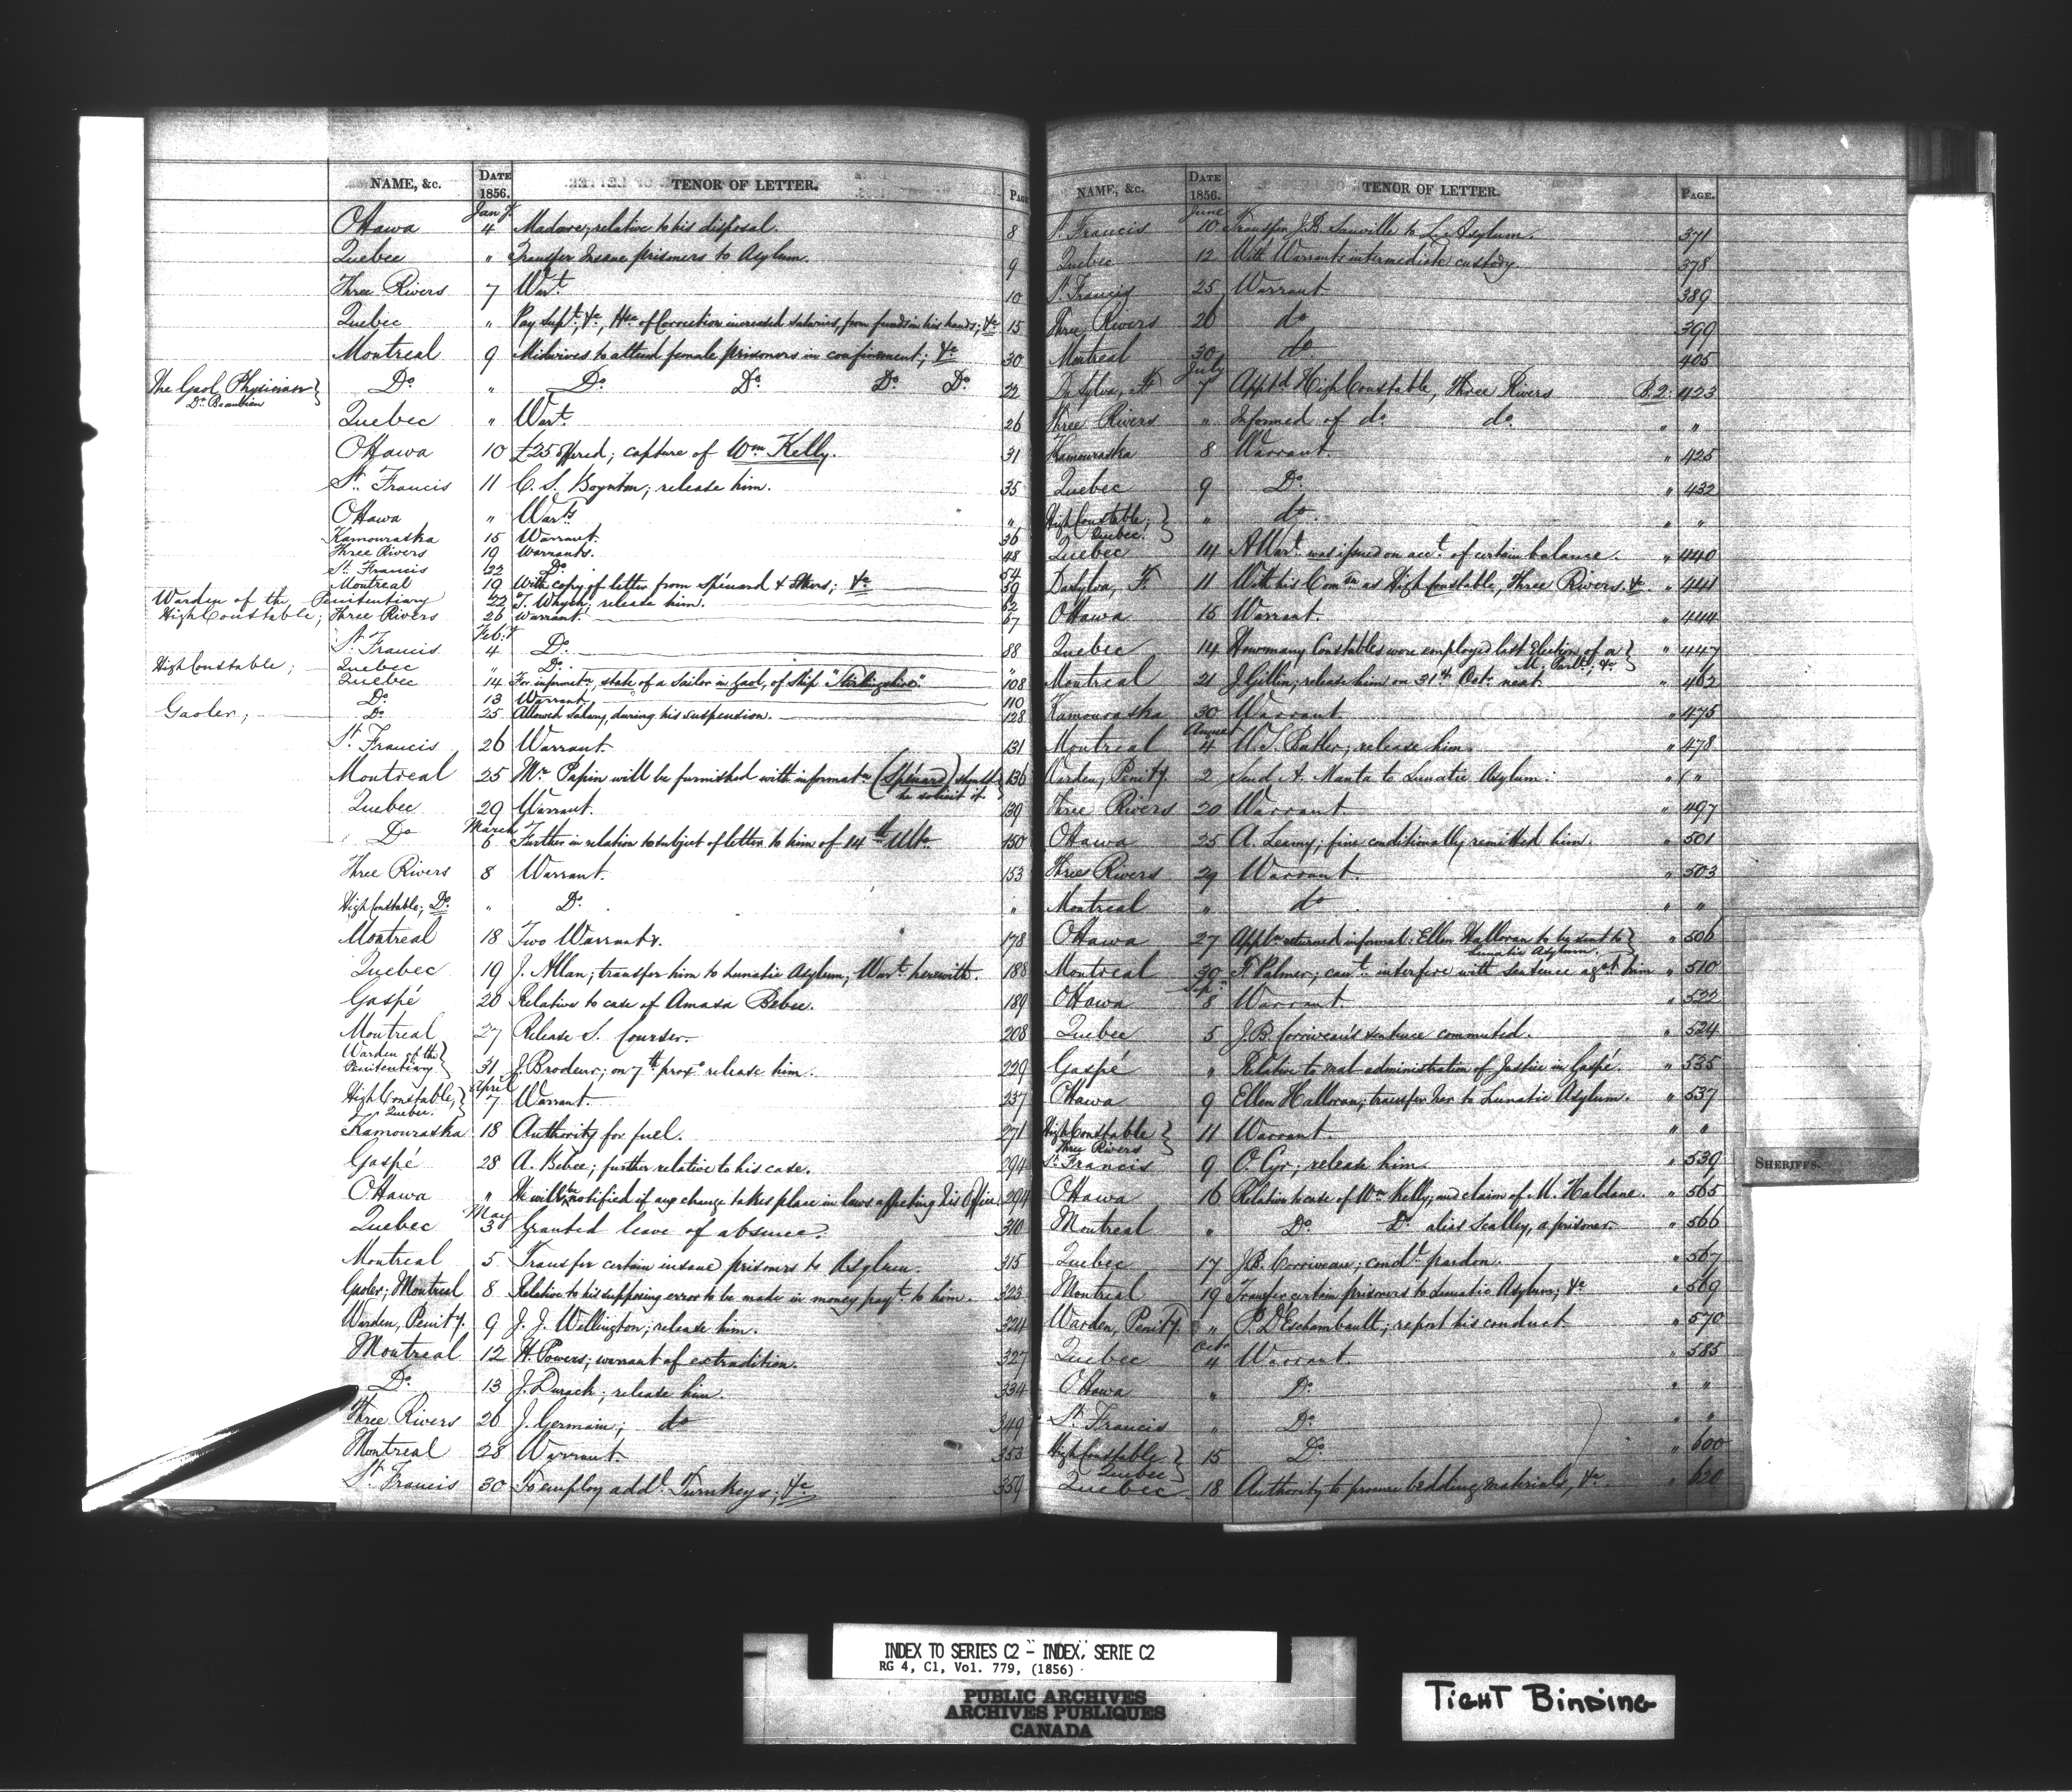 NAME, &c. DATE 1856. TENOR OF LETTER. PAGE
Jany.
Ottawa 4 Madore; relative to his disposal. 8
Quebec " Transfer Insane prisoners to Asylum. 9
Three Rivers 7 Wart. 10
Quebec " Pay Supt. &c, Hse of Correction increased salaries, from funds in his hands; &c 15
Montreal 9 Midwives to attend female prisoners in confinement; &c 30
The Gaol Physician } Do. " Do. Do. Do. Do. 22
Dr. Beaubien
Quebec " Wart. 26
Ottawa 10 £25 offered; capture of Wm Kelly. 31
St. Francis 11 C. S. Boynton; release him. 35
Ottawa " Warts. "
Kamouraska 15 Warrant. 36
Three Rivers 19 Warrants. 48
St. Francis 22 Do. 54
Montreal 19 With copy of letter from Spénard & others; &c 59
Warden of the Penitentiary 22 T. Whych; release him. 62
High Constable; Three Rivers 26 Warrant. 67
Feby.
St. Francis 4 Do. 88
High Constable; Quebec " Do. "
Quebec 14 For informatn, state of a Sailor in Gaol, of Ship "Stirlingshire." 108
Do. 13 Warrant. 110
Gaoler; Do. 25 Allowed Salary during his suspension. 128
St. Francis 26 Warrant. 131
Montreal 25 Mr Papin will be furnished with informatn (Spénard) should he solicit it. 136
Quebec 29 Warrant. 139
March
Do 6 Further in relation to subject of letter to him of 14th Ulto. 150
Three Rivers 8 Warrant. 153
High Constable; Do. " Do. "
Montreal 18 Two Warrants. 178
Quebec 19 J. Allan; transfer him to Lunatic Asylum; Wart. herewith. 188
Gaspé 20 Relative to case of Amasa Bebee. 189
Montreal 27 Release S. Courser. 208
Warden of the Penitentiary } 31 J. Brodeur; on 7th proxo release him. 229
April
High Constable, Quebec. } 7 Warrant. 237
Kamouraska 18 Authority for fuel. 271
Gaspé 28 A. Bebee; further relative to his case. 294
Ottawa " He will be notified if any change takes place in laws affecting his Office. 294
May
Quebec 3 Granted leave of absence. 310
Montreal 5 Transfer certain insane prisoners to Asylum. 315
Gaoler; Montreal 8 Relative to his supposing error to be made in money payt. to him. 323
Warden, Penity. 9 J. J. Wellington; release him. 324
Montreal 12 H. Powers; warrant of extradition. 327
Do. 13 J. Durack; release him. 334
Three Rivers 26 J. Germain; do 349
Montreal 28 Warrant. 353
St. Francis 30 To employ addl. Turnkeys; &c 359
NAME, &c. DATE 1856. TENOR OF LETTER. PAGE.
June
St. Francis 10 Transfer J.B. Sauville to L. Asylum. 371
Quebec 12 With Warrants intermediate custody. 378
St. Francis 25 Warrant. 389
Three Rivers 26 do 399
Montreal 30 do 405
July
DaSylva, F. 7 Apptd. High Constable, Three Rivers P.2. 423
Three Rivers " Informed of do. do. " "
Kamouraska 8 Warrant. " 425
Quebec 9 Do. " 432
High Constable; Quebec. } " do. " "
Quebec 14 A Wart. was issued on acct. of certain balance. " 440
DaSylva, F. 11 With his Comn as High Constable, Three Rivers. &c. " 441
Ottawa 15 Warrant. " 444
Quebec 14 How many Constables were employed last Election of a M. Parlt.; &c } " 447
Montreal 21 J. Gillin; release him on 31st Octr. next. " 462
Kamouraska 30 Warrant. " 475
August
Montreal 4 U. S. Butler; release him. " 478
Warden, Penity. 2 Send A. Manta to Lunatic Asylum. " "
Three Rivers 20 Warrant. " 497
Ottawa 25 A. Leamy; fine conditionally remitted him. " 501
Three Rivers 29 Warrant. " 503
Montreal " do " "
Ottawa 27 Appln returned informal: Ellen Halloran to be sent to Lunatic Asylum. } " 506
Montreal 30 F. Palmer; can't. interfere with sentence agst. him " 510
Sepr.
Ottawa 8 Warrant. " 522
Quebec 5 J.B. Corriveau's sentence commuted. " 524
Gaspé " Relative to mal-administration of Justice in Gaspé. " 535
Ottawa 9 Ellen Halloran; transfer her to Lunatic Asylum. " 537
High Constable Three Rivers } 11 Warrant. " "
St. Francis 9 O. Cyr; release him. " 539
Ottawa 16 Relative to case of Wm Kelly; and claim of M. Haldane. " 565
Montreal " Do. Do. alias Scalley, a prisoner. " 566
Quebec 17 J.B. Corriveau; condl. pardon. " 567
Montreal 19 Transfer certain prisoners to Lunatic Asylum; &c " 569
Warden, Penity. " P. D'Eschambault; report his conduct " 570
Octr.
Quebec 4 Warrant. " 585
Ottawa " Do. " "
St. Francis " Do. " "
High Constable Quebec } 15 Do. " 600
Quebec 18 Authority to procure bedding materials, &c. " 620
SHERIFFS.
INDEX TO SERIES C2 - INDEX, SERIE C2
RG 4, C1, Vol. 779, (1856)
PUBLIC ARCHIVES
ARCHIVES PUBLIQUES
CANADA
TIGHT BINDING